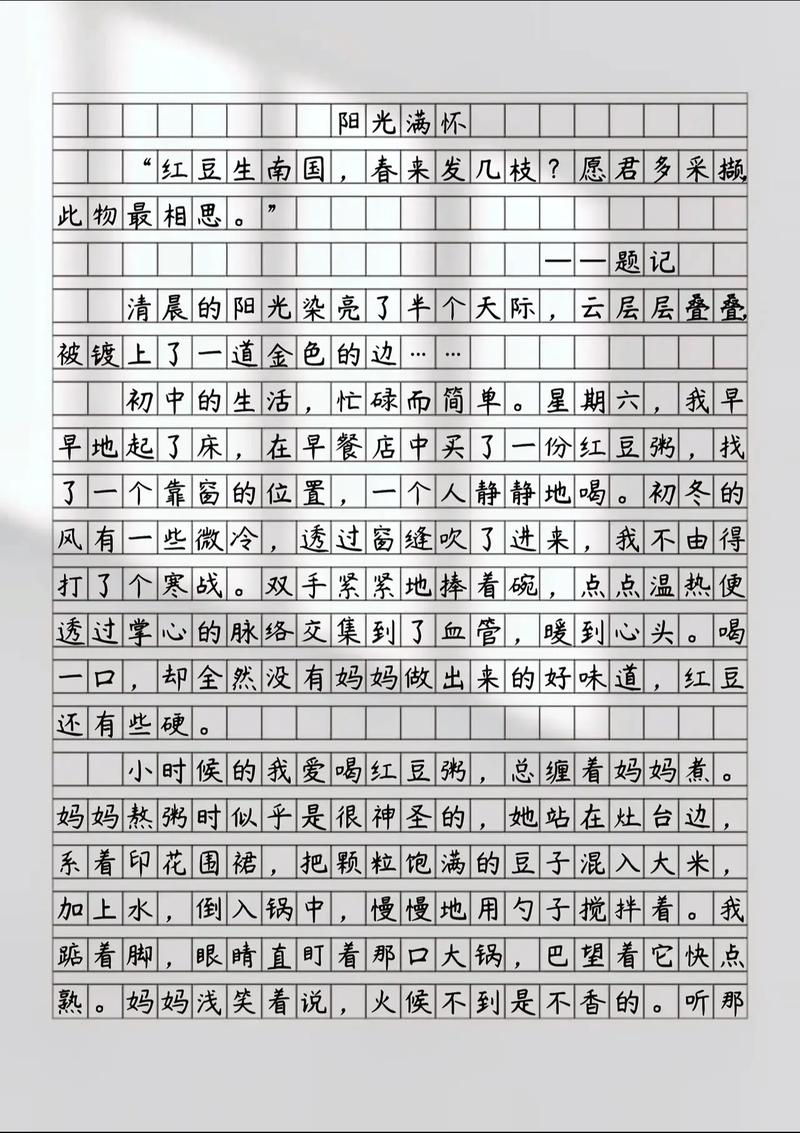 阳光满怀
“红豆生南国，春来发几枝？愿君多采撷，
此物最相思。”
——题记
清晨的阳光染亮了半个天际，云层层叠叠，
被镀上了一道金色的边……
初中的生活，忙碌而简单。星期六，我早
早地起了床，在早餐店中买了一份红豆粥，找
了一个靠窗的位置，一个人静静地喝。初冬的
风有一些微冷，透过窗缝吹了进来，我不由得
打了个寒战。双手紧紧地捧着碗，点点温热便
透过掌心的脉络交集到了血管，暖到心头。喝
一口，却全然没有妈妈做出来的好味道，红豆
还有些硬。
小时候的我爱喝红豆粥，总缠着妈妈煮。
妈妈熬粥时似乎是很神圣的，她站在灶台边，
系着印花围裙，把颗粒饱满的豆子混入大米，
加上水，倒入锅中，慢慢地用勺子搅拌着。我
踮着脚，眼睛直盯着那口大锅，巴望着它快点
熟。妈妈浅笑着说，火候不到是不香的。听那